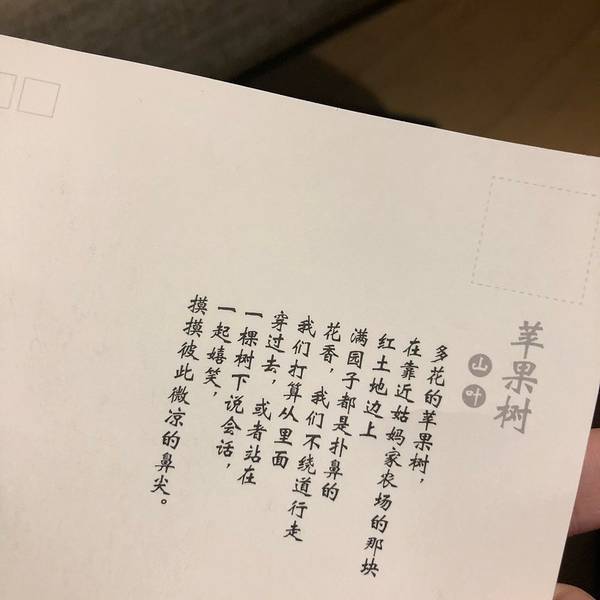 苹果树
山叶
多花的苹果树，
在靠近姑妈家农场的那块
红土地边上
满园子都是扑鼻的
花香，我们不绕道行走
我们打算从里面
穿过去，或者站在
一棵树下说会话，
一起嬉笑，
摸摸彼此微凉的鼻尖。